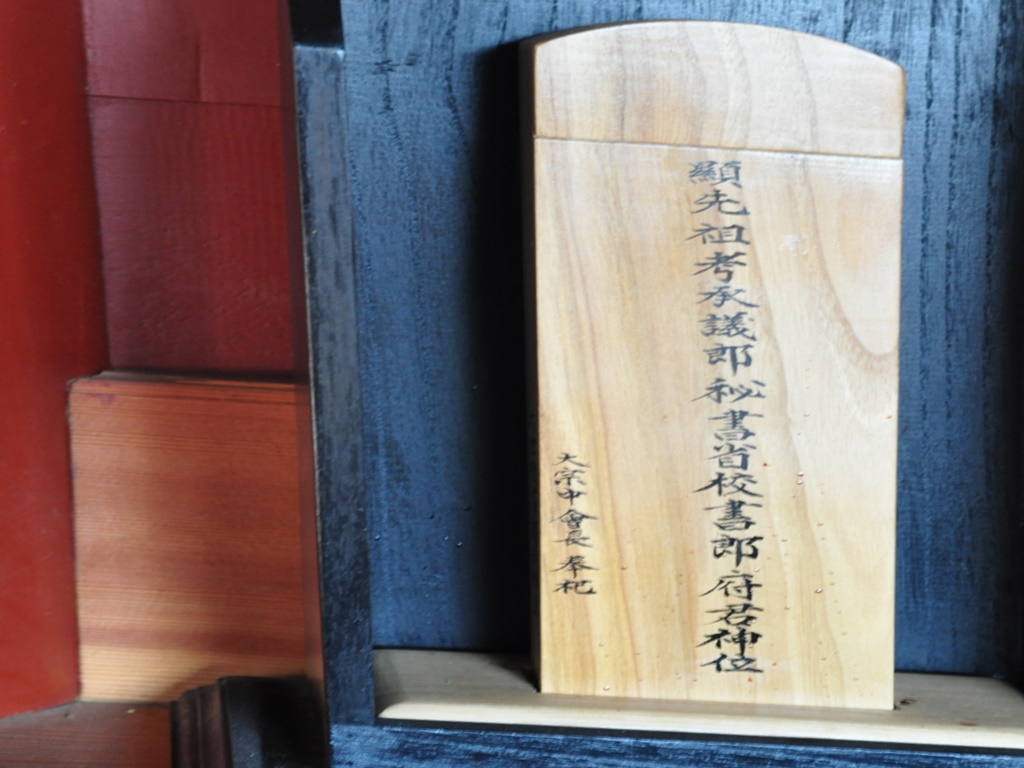 顯先祖考承議郎秘書省校書郎府君神位
大宗中會長 奉祀